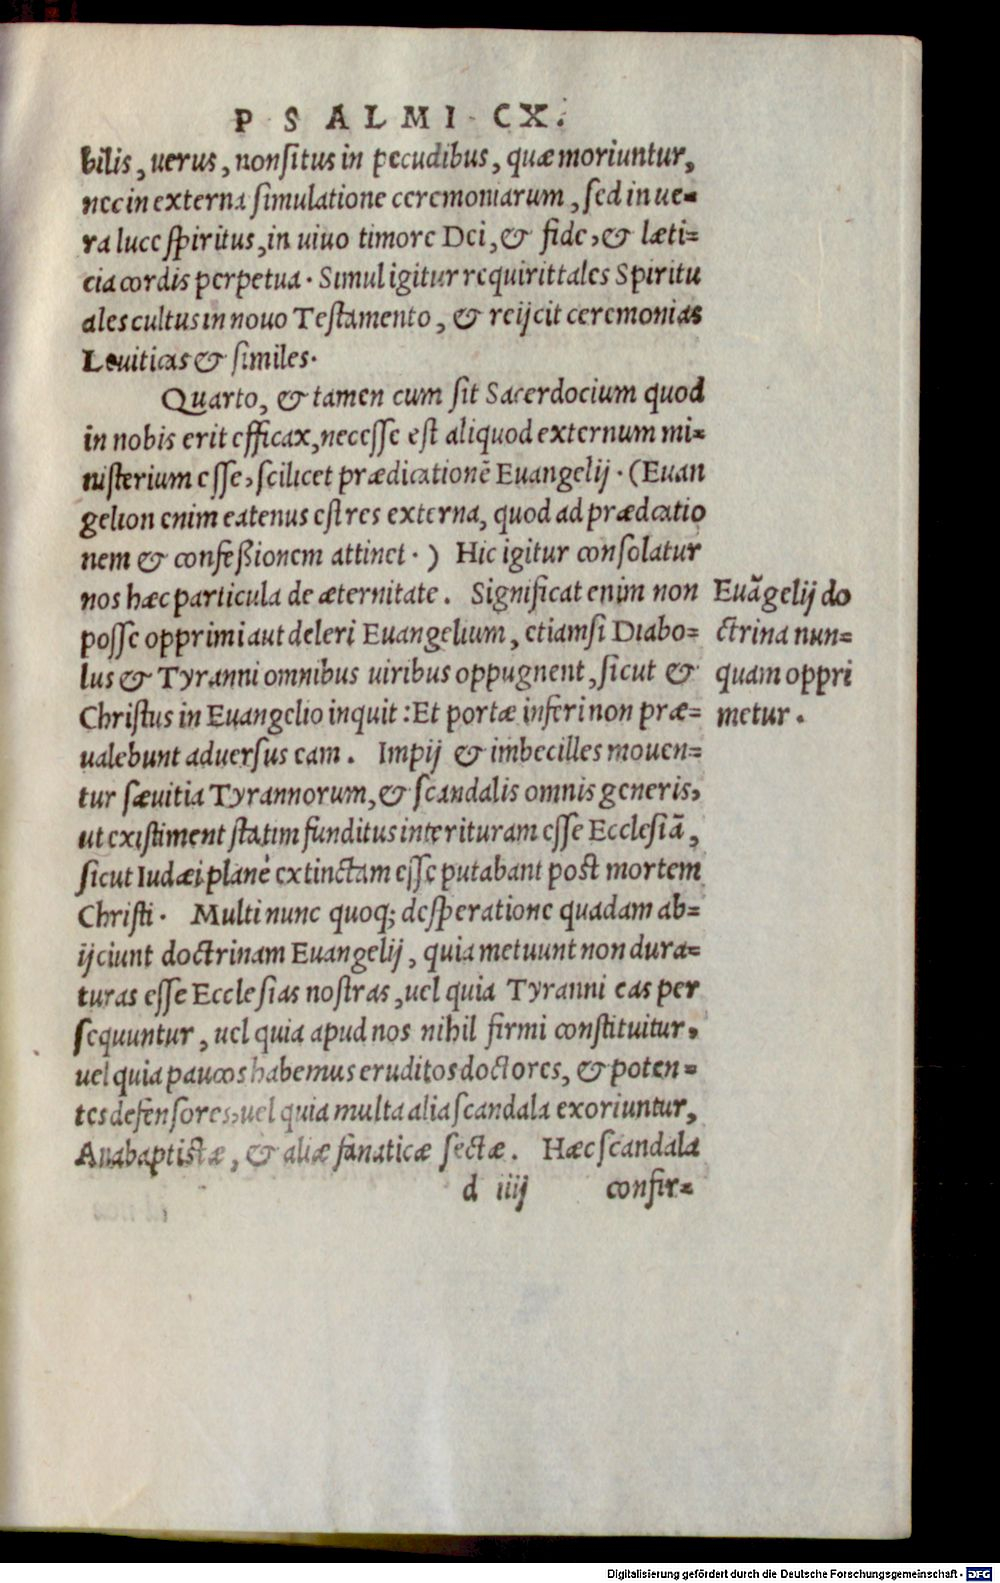 PSALMI CX.
bilis, uerus, non situs in pecudibus, quæ moriuntur,
nec in externa simulatione ceremoniarum, sed in ue=
ra luce spiritus, in uiuo timore Dei, & fide, & læti=
cia cordis perpetua. Simul igitur requirit tales Spiritu
ales cultus in nouo Testamento, & reijcit ceremonias
Leuiticas & similes.
Quarto, & tamen cum sit Sacerdocium quod
in nobis erit efficax, necesse est aliquod externum mi=
nisterium esse, scilicet prædicationē Euangelij. (Euan
gelion enim eatenus est res externa, quod ad prædcatio
nem & confeßionem attinet.) Hic igitur consolatur
nos hæc particula de æternitate. Significat enim non
posse opprimi aut deleri Euangelium, etiamsi Diabo=
lus & Tyranni omnibus uiribus oppugnent, sicut &
Christus in Euangelio inquit: Et portæ inferi non præ=
ualebunt aduersus eam. Impij & imbecilles mouen=
tur sæuitia Tyrannorum, & scandalis omnis generis,
ut existiment statim funditus interituram esse Ecclesiā,
sicut Iudæi planè extinctam esse putabant post mortem
Christi. Multi nunc quoq; desperatione quadam ab=
ijciunt doctrinam Euangelij, quia metuunt non dura=
turas esse Ecclesias nostras, uel quia Tyranni eas per
sequuntur, uel quia apud nos nihil firmi constituitur,
uel quia paucos habemus eruditos doctores, & poten=
tes defensores, uel quia multa alia scandala exoriuntur,
Anabaptistæ, & aliæ fanaticæ sectæ. Hæc scandala
d iiij confir=
Euāgelij do
ctrina nun=
quam oppri
metur.
Digitalisierung gefördert durch die Deutsche Forschungsgemeinschaft - DFG